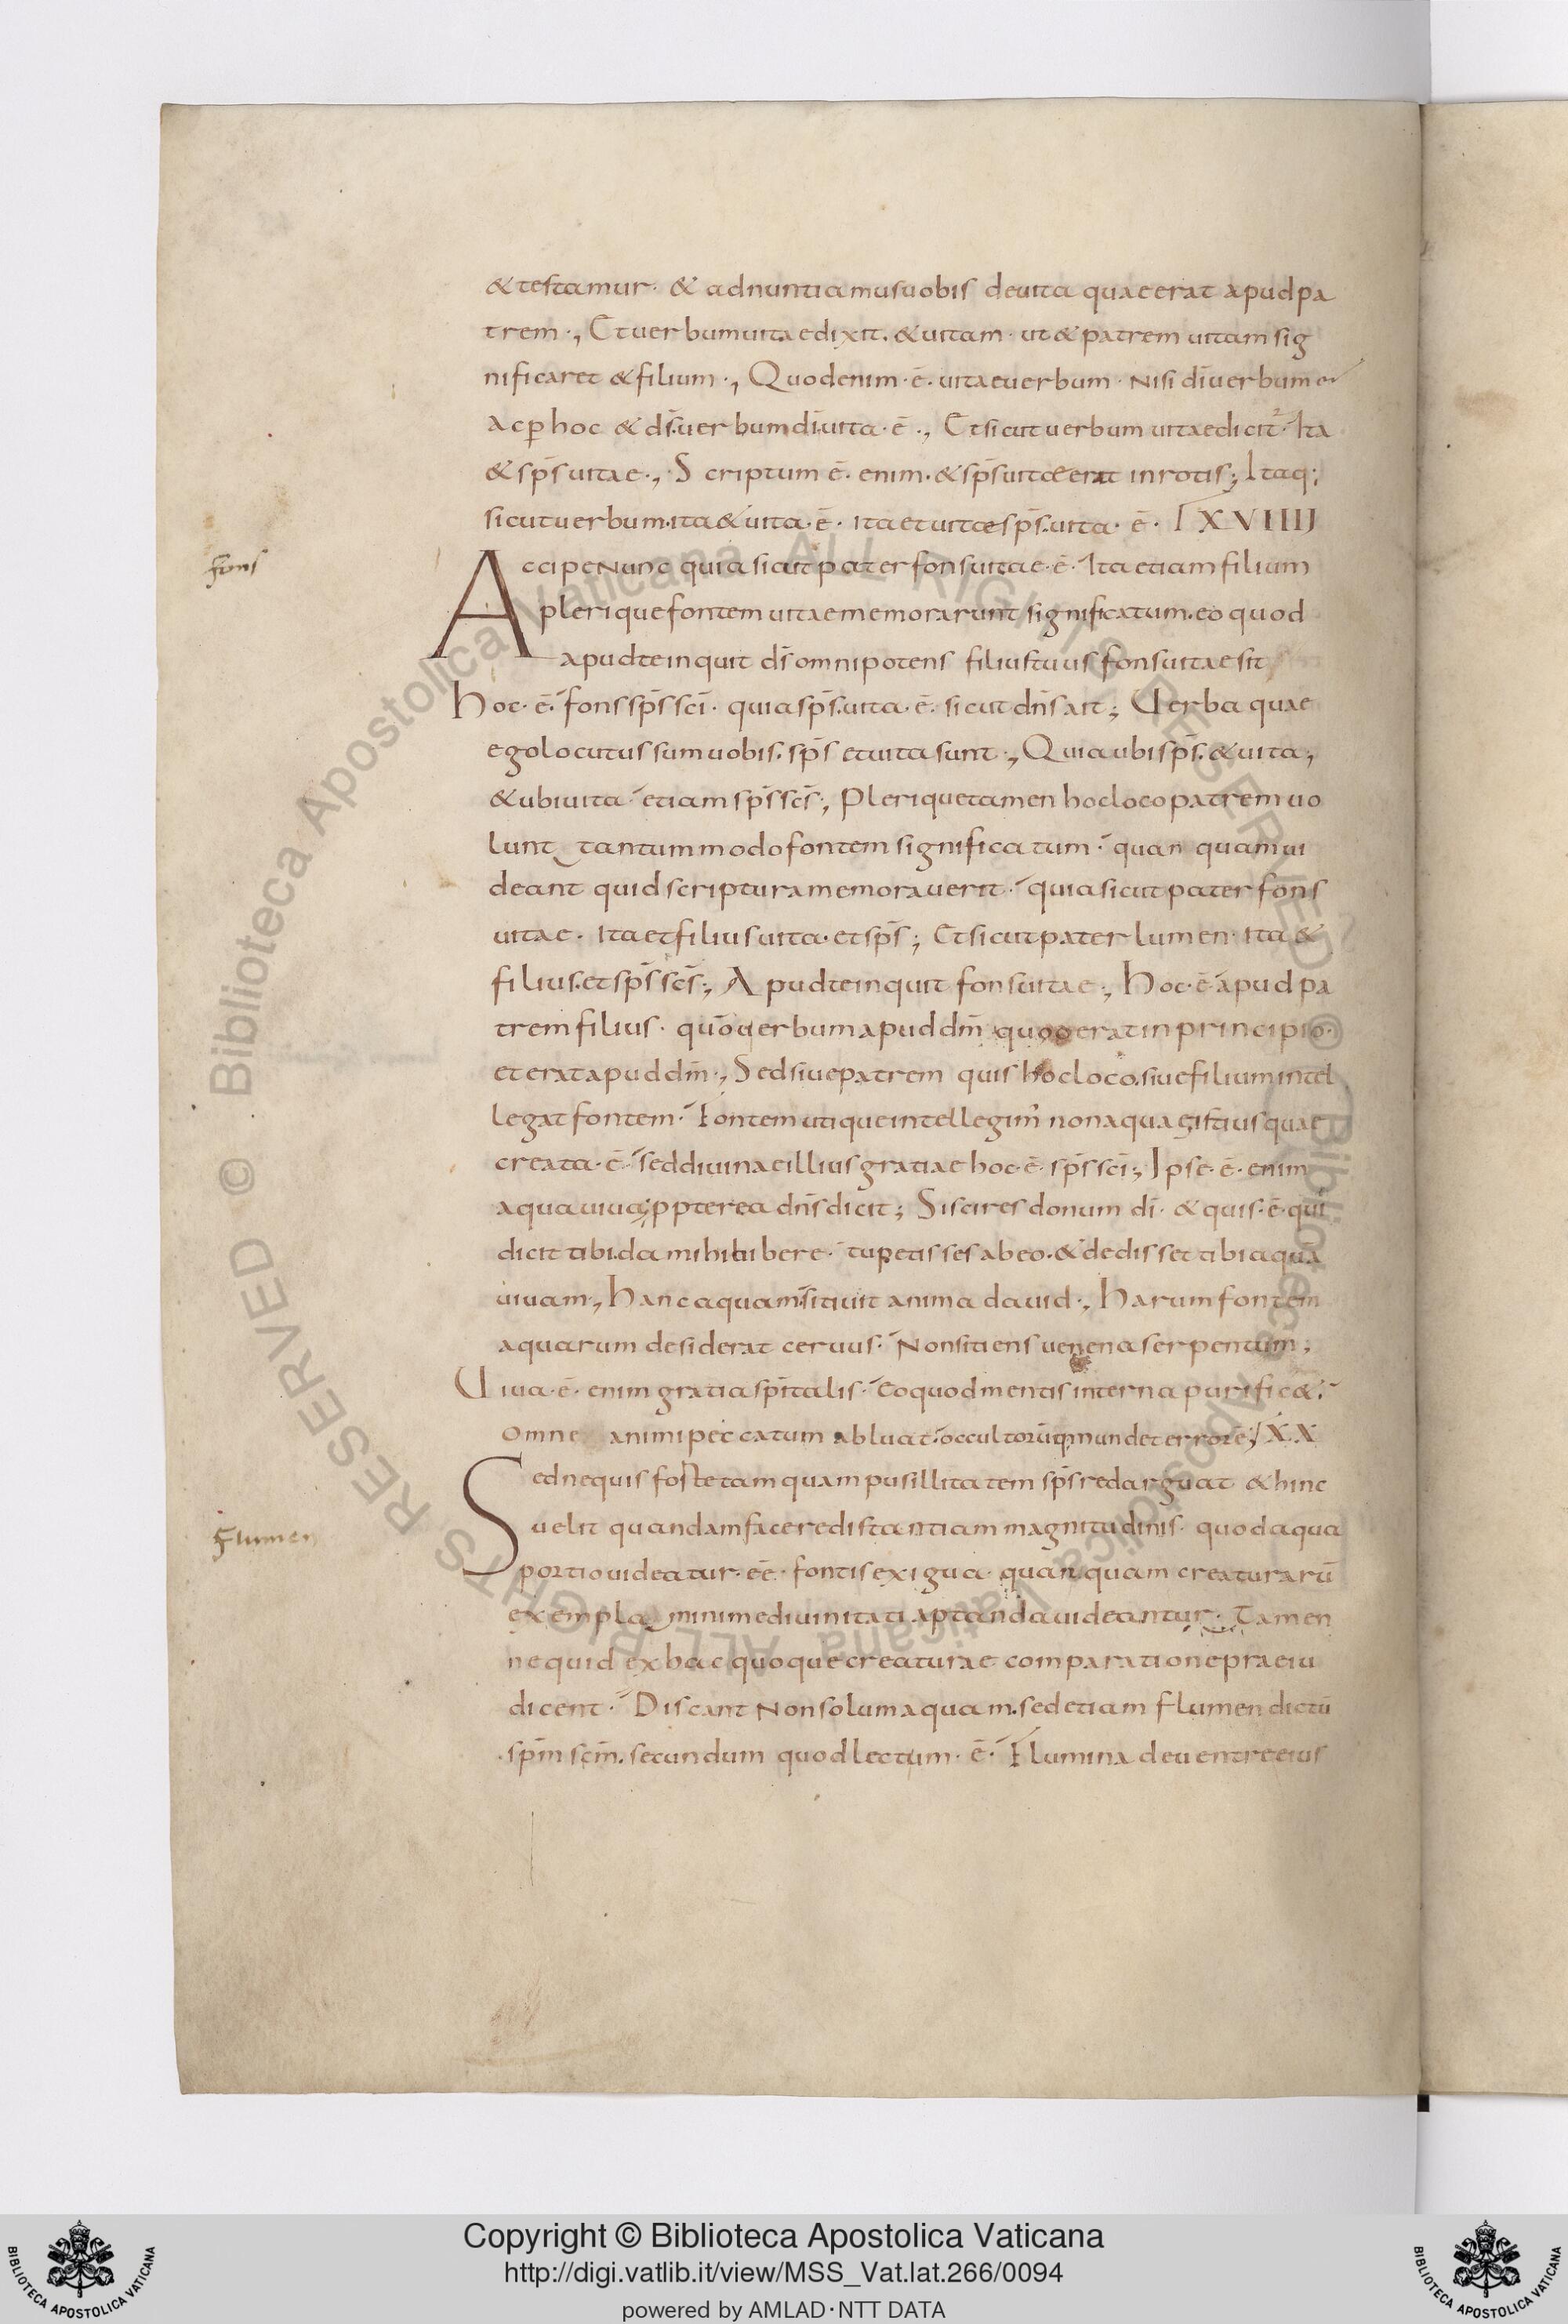 & testamur· & adnuntiamus uobis de uita quae erat apud pa
trem·, Et uerbum uitae dixit· & uitam· ut & patrem uitam sig
nificaret & filium·, Quod enim·ē· uitae uerbum· Nisi dī uerbum
ac ꝑ hoc & dī uerbum dī uita·ē·, Et sicut uerbum uitae dicit· Ita
& sp̄s uitae·, Scriptum ē· enim· & sp̄s uitae erat in rotis; Itaq;
sicut uerbum· ita & uita·ē· ita et uitae sp̄s· uita·ē· XVIIII
fons
Accipe Nunc quia sicut pater fons uitae·ē· Ita etiam filium
plerique fontem uitae memorarunt significatum· eo quod
apud te inquit dS omnipotens filius tuus fons uitae sit
hoc·ē· fons sp̄s sc̄i· quia sp̄s· uita·ē· sicut dn̄s ait; Uerba quae
ego locutus sum uobis· sp̄s et uita sunt·, Quia ubi sp̄s· & uita;
& ubi uita· etiam sp̄s sc̄s; Plerique tamen hoc loco patrem uo
lunt tantummodo fontem significatum· quan quam ui
deant quid scriptura memorauerit· quia sicut pater fons
uitae· Ita et filius uita· et sp̄s; Et sicut pater lumen· ita &
filius· et sp̄s sc̄s·, Apud te inquit fons uitae·, Hoc·ē· apud pa
trem filius· quō uerbum apud dm̄ quod erat in principio·
et erat apud dm̄·, Sed siue patrem quis hoc loco· siue filium intel
legat fontem· Fontem utique intellegim' non aquae istius quae
creata·ē· sed diuinae illius gratiae hoc·ē· sp̄s sc̄i; Ipse·ē· enim
aqua uiua; ppterea dn̄s dicit; Si scires donum dī· & quis·ē· qui
dicit tibi· da mihi bibere· tu petisses ab eo· & dedisset tibi aquā
uiuam·, Hanc aquam sitiuit anima dauid·, Harum fontem
aquarum desiderat ceruus· Non sitiens uenena serpentum;
Uiua·ē· enim gratia spītalis· Eo quod mentis interna purific&·
omne animi peccatum abluat· occultorūq; mundet errorē; XX
Sed ne quis fort etam quam pusillitatem sp̄s redarguat & hinc
uelit quandam facere distantiam magnitudinis· quod aqua
Flumen
portio uideatur· eē· fontis exigua· quan quam creaturarū
exempla minime diuinitati aptanda uideantur· Tamen
ne quid ex hac quoque creaturae comparatione praeiu
dicent· Discant Non solum aquam· sed etiam flumen dictū
sp̄m sc̄m· secundum quod lectum·ē· Flumina de uentre eius
© Biblioteca Apostolica Vaticana ALL RIGHTS RESERVED © Biblioteca Apostolica Vaticana ALL RIGHTS RESERVED
Copyright © Biblioteca Apostolica Vaticana
http://digi.vatlib.it/view/MSS_Vat.lat.266/0094
powered by AMLAD·NTT DATA
BIBLIOTECA APOSTOLICA VATICANA
BIBLIOTECA APOSTOLICA VATICANA